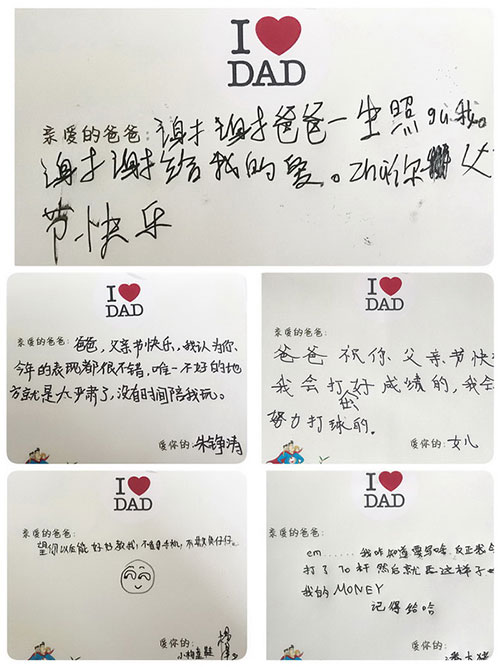 I ❤ DAD
亲爱的爸爸:谢谢谢谢爸爸一生照gu我。
谢谢谢谢给我的爱。zhù你 父
节快乐
I ❤ DAD
亲爱的爸爸:
爸爸,父亲节快乐,我认为你
今年的表现都很不错,唯一不好的地
方就是太严肃了,没有时间陪我玩。
爱你的:朱铮涛
I ❤ DAD
亲爱的爸爸:
爸爸 祝你 父亲节快
我会打好成绩的,我会
努力打球的。
爱你的:女儿
I ❤ DAD
亲爱的爸爸:
望你以后能好好教我,不看手机,
爱你的:
I ❤ DAD
亲爱的爸爸:
em......我咋知道要写啥,反正我
打了70杆 然后就是这样子
我的MONEY
记得给哈
爱你的: